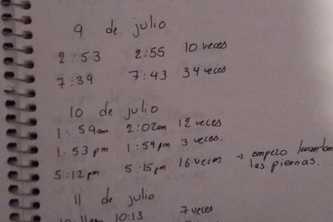 9 de julio
2:53 2:55 10 veces
7:39 7:43 34 veces
10 de julio
1:59am 2:02am 12 veces
1:53 pm 1:59pm 3 veces.
5:12 pm 5:15 pm 16 veces → empezo
las piernas.
11 de julio
10:13 7 veces